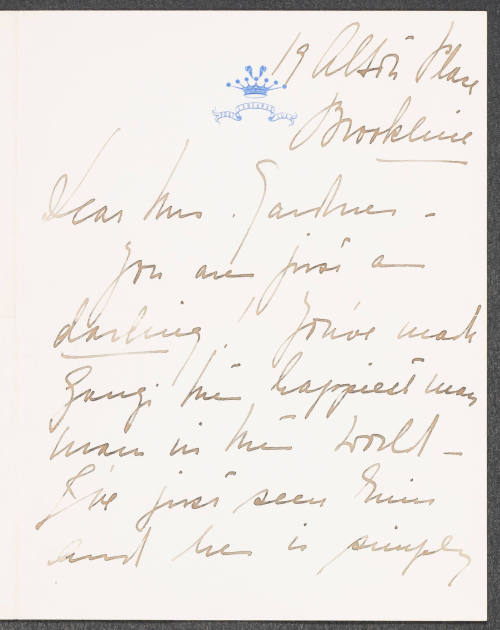 19 Alton Place
Brookline
Dear Mrs. Gardner -
You are just a
darling! You've made
Zangi the happiest man
man in the world -
I've just seen him
and he is simply